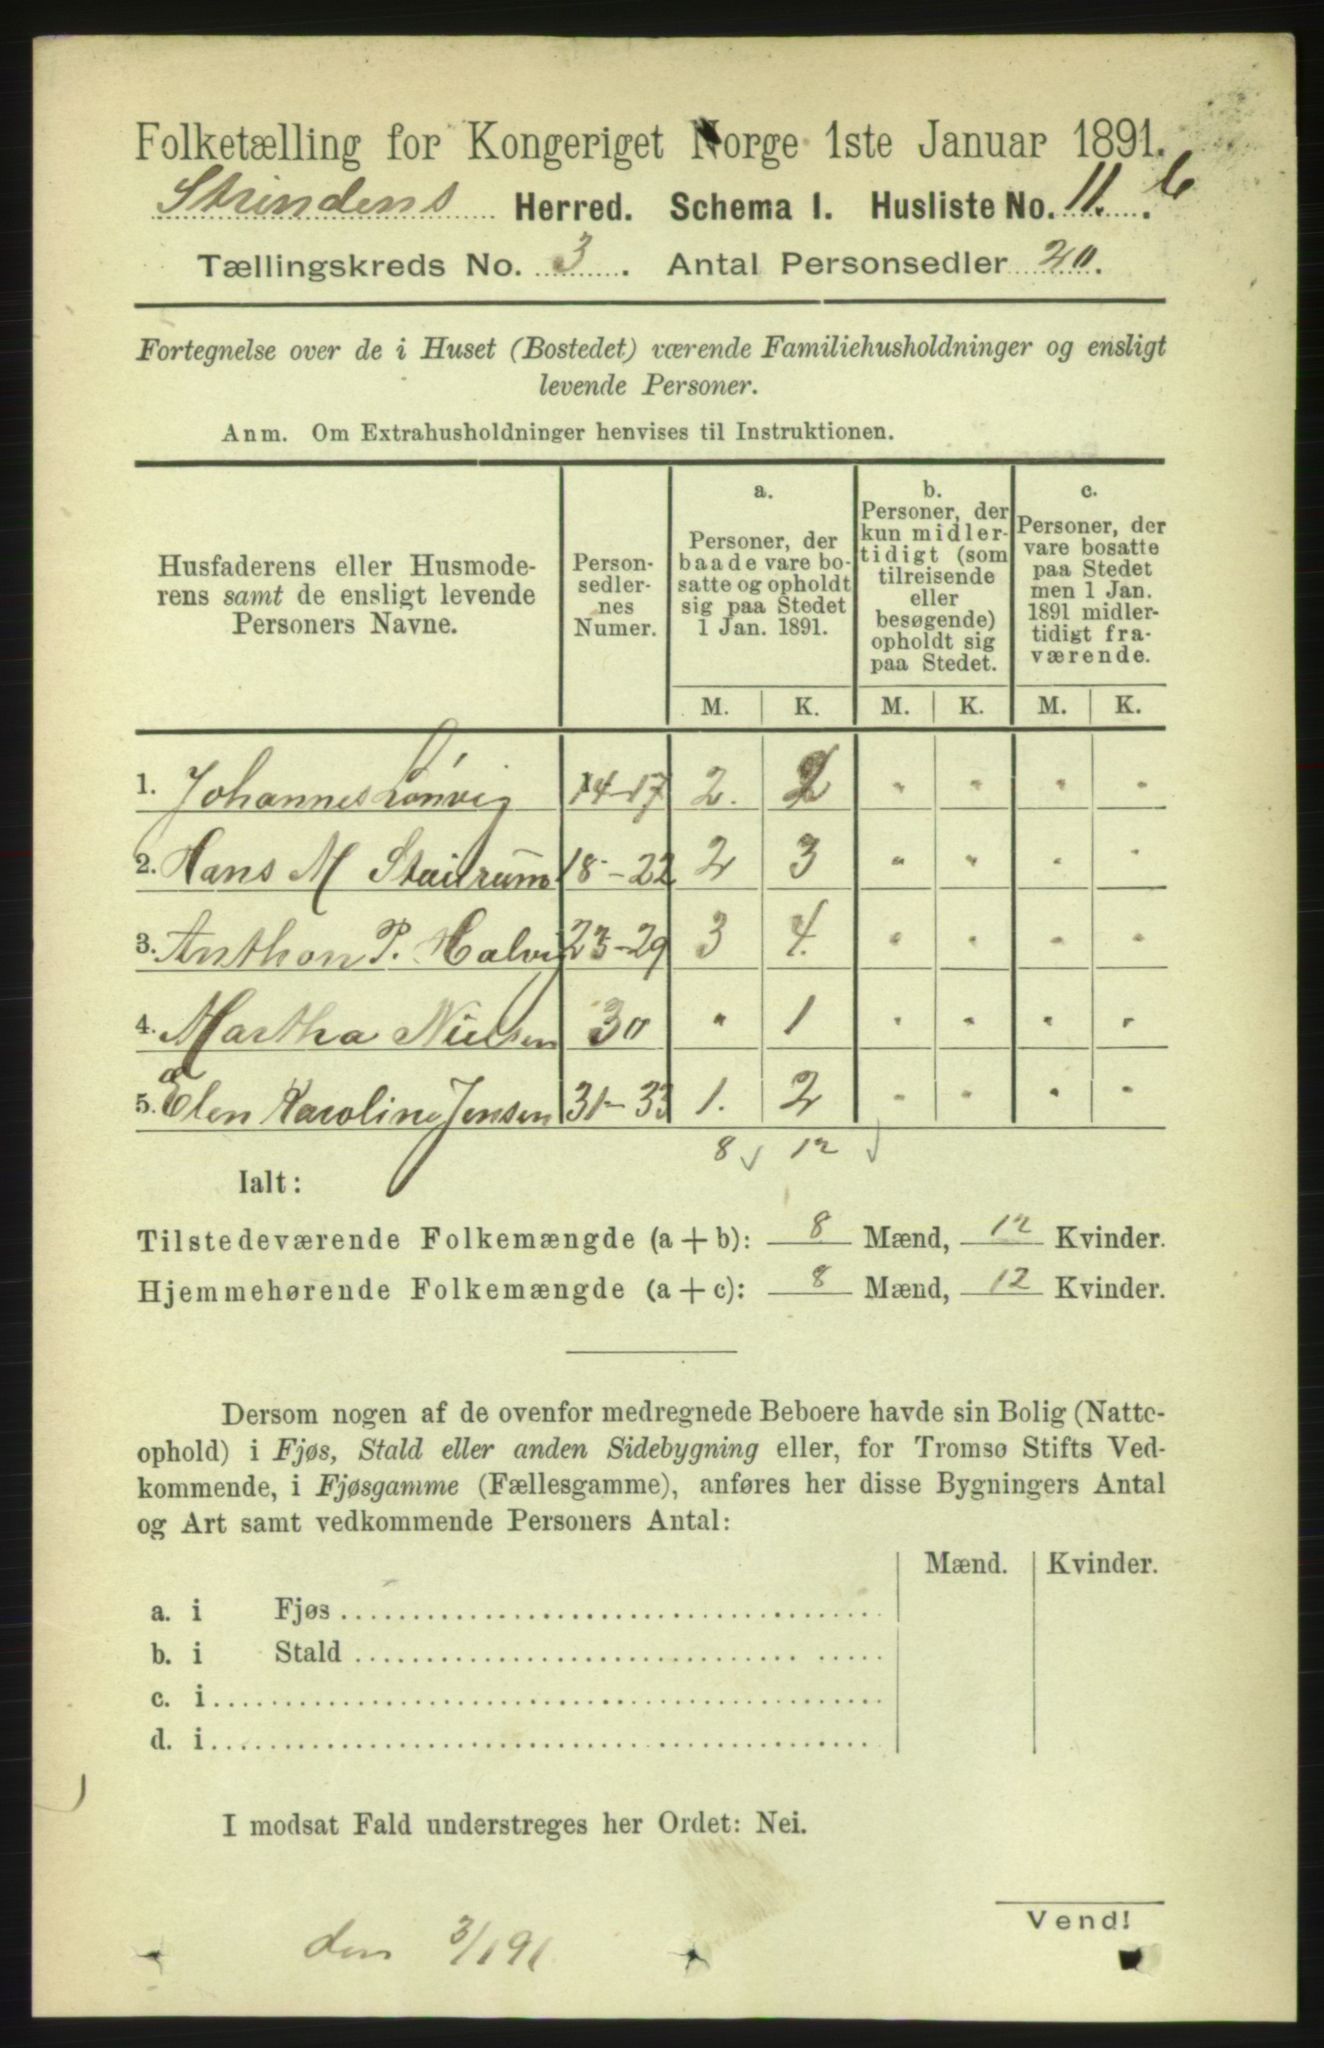 Folketælling for Kongeriget Norge 1ste Januar 1891.
Strindens Herred. Schema I. Husliste No. 11. b
Tællingskreds No. 3. Antal Personsedler 20.
Fortegnelse over de i Huset (Bostedet) værende Familiehusholdninger og ensligt
levende Personer.
Anm. Om Extrahusholdninger henvises til Instruktionen.
Husfaderens eller Husmode-
rens samt de ensligt levende
Personers Navne.
Person-
sedler-
nes
Numer.
a.
Personer, der
baade vare bo-
satte og opholdt
sig paa Stedet
1 Jan. 1891.
b.
Personer, der
kun midler-
tidigt (som
tilreisende
eller
besøgende)
opholdt sig
paa Stedet.
c.
Personer, der
vare bosatte
paa Stedet
men 1 Jan.
1891 midler-
tidigt fra-
værende.
M. K. M. K. M. K.
1. Johannes Lønvig 14-17 2. 2 " " " "
2. Hans M 18-22 2 3 " " " "
3. Anthon P. 23-29 3 4. " " " "
4. Martha Nielsen 30 " 1 " " " "
5. Elen Karoline Jensen 31-33 1. 2 " " " "
8 12
Ialt:
Tilstedeværende Folkemængde (a + b): 8 Mænd, 12 Kvinder.
Hjemmehørende Folkemængde (a + c): 8 Mænd, 12 Kvinder.
Dersom nogen af de ovenfor medregnede Beboere havde sin Bolig (Natte-
ophold) i Fjøs, Stald eller anden Sidebygning eller, for Tromsø Stifts Ved-
kommende, i Fjøsgamme (Fællesgamme), anføres her disse Bygningers Antal
og Art samt vedkommende Personers Antal:
Mænd. Kvinder.
a. i Fjøs
b. i Stald
c. i
d. i
I modsat Fald understreges her Ordet: Nei.
Vend!
den 3/1 91